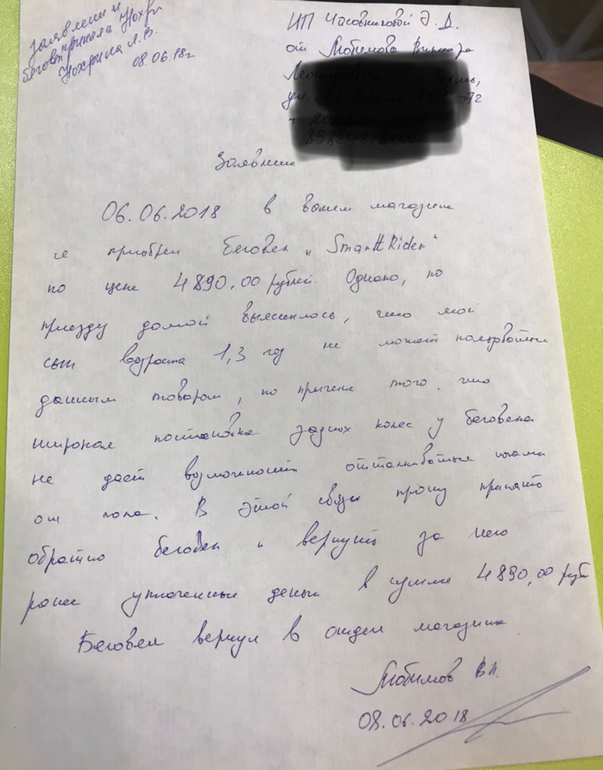 Заявление и
беговел приняла Нохр
Нохрина Л.В.
08.06.18г
ИП Часовниковой Э. Д.
от Любимова
ул.
Заявление
06.06.2018 в вашем магазине
я приобрел беговел „SmartRider"
по цене 4 890,00 рублей. Однако, по
приезду домой выяснилось, что мой
сын возраста 1,3 год не может пользоваться
данным товаром, по причине того, что
широкая постановка задних колес у беговела
не дает возможности отталкиваться ногами
от пола. В этой связи прошу принять
обратно беговел и вернуть за него
ранее уплаченные деньги в сумме 4 890,00 руб
Беговел вернул в отдел магазина
Любимов В.Л.
08.06.2018